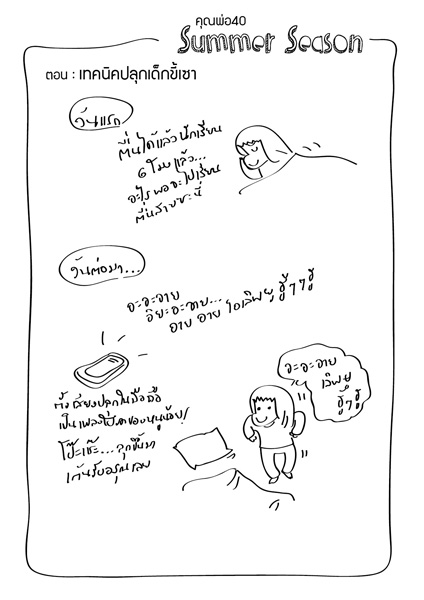 คุณพ่อ40
Summer Season
ตอน : เทคนิคปลุกเด็กขี้เซา
วันแรก
ตื่นได้แล้วนักเรียน
6 โมงแล้ว...
อะไร พอจะไปเรียน
ตื่นสายซะนี่
วันต่อมา...
อะอะอาย
อิยะอะอาย...
อาย อาย ไอเลิฟยู ฮู้ๆๆฮู้
ตั้งเสียงปลุกในมือถือ
เป็นเพลงโปรดของหนูน้อย!
โป๊ะเชะ...ลุกขึ้นมา
เต้นรับอรุณเลย
อะอะอาย
เลิฟยู
ฮู้ๆฮู้